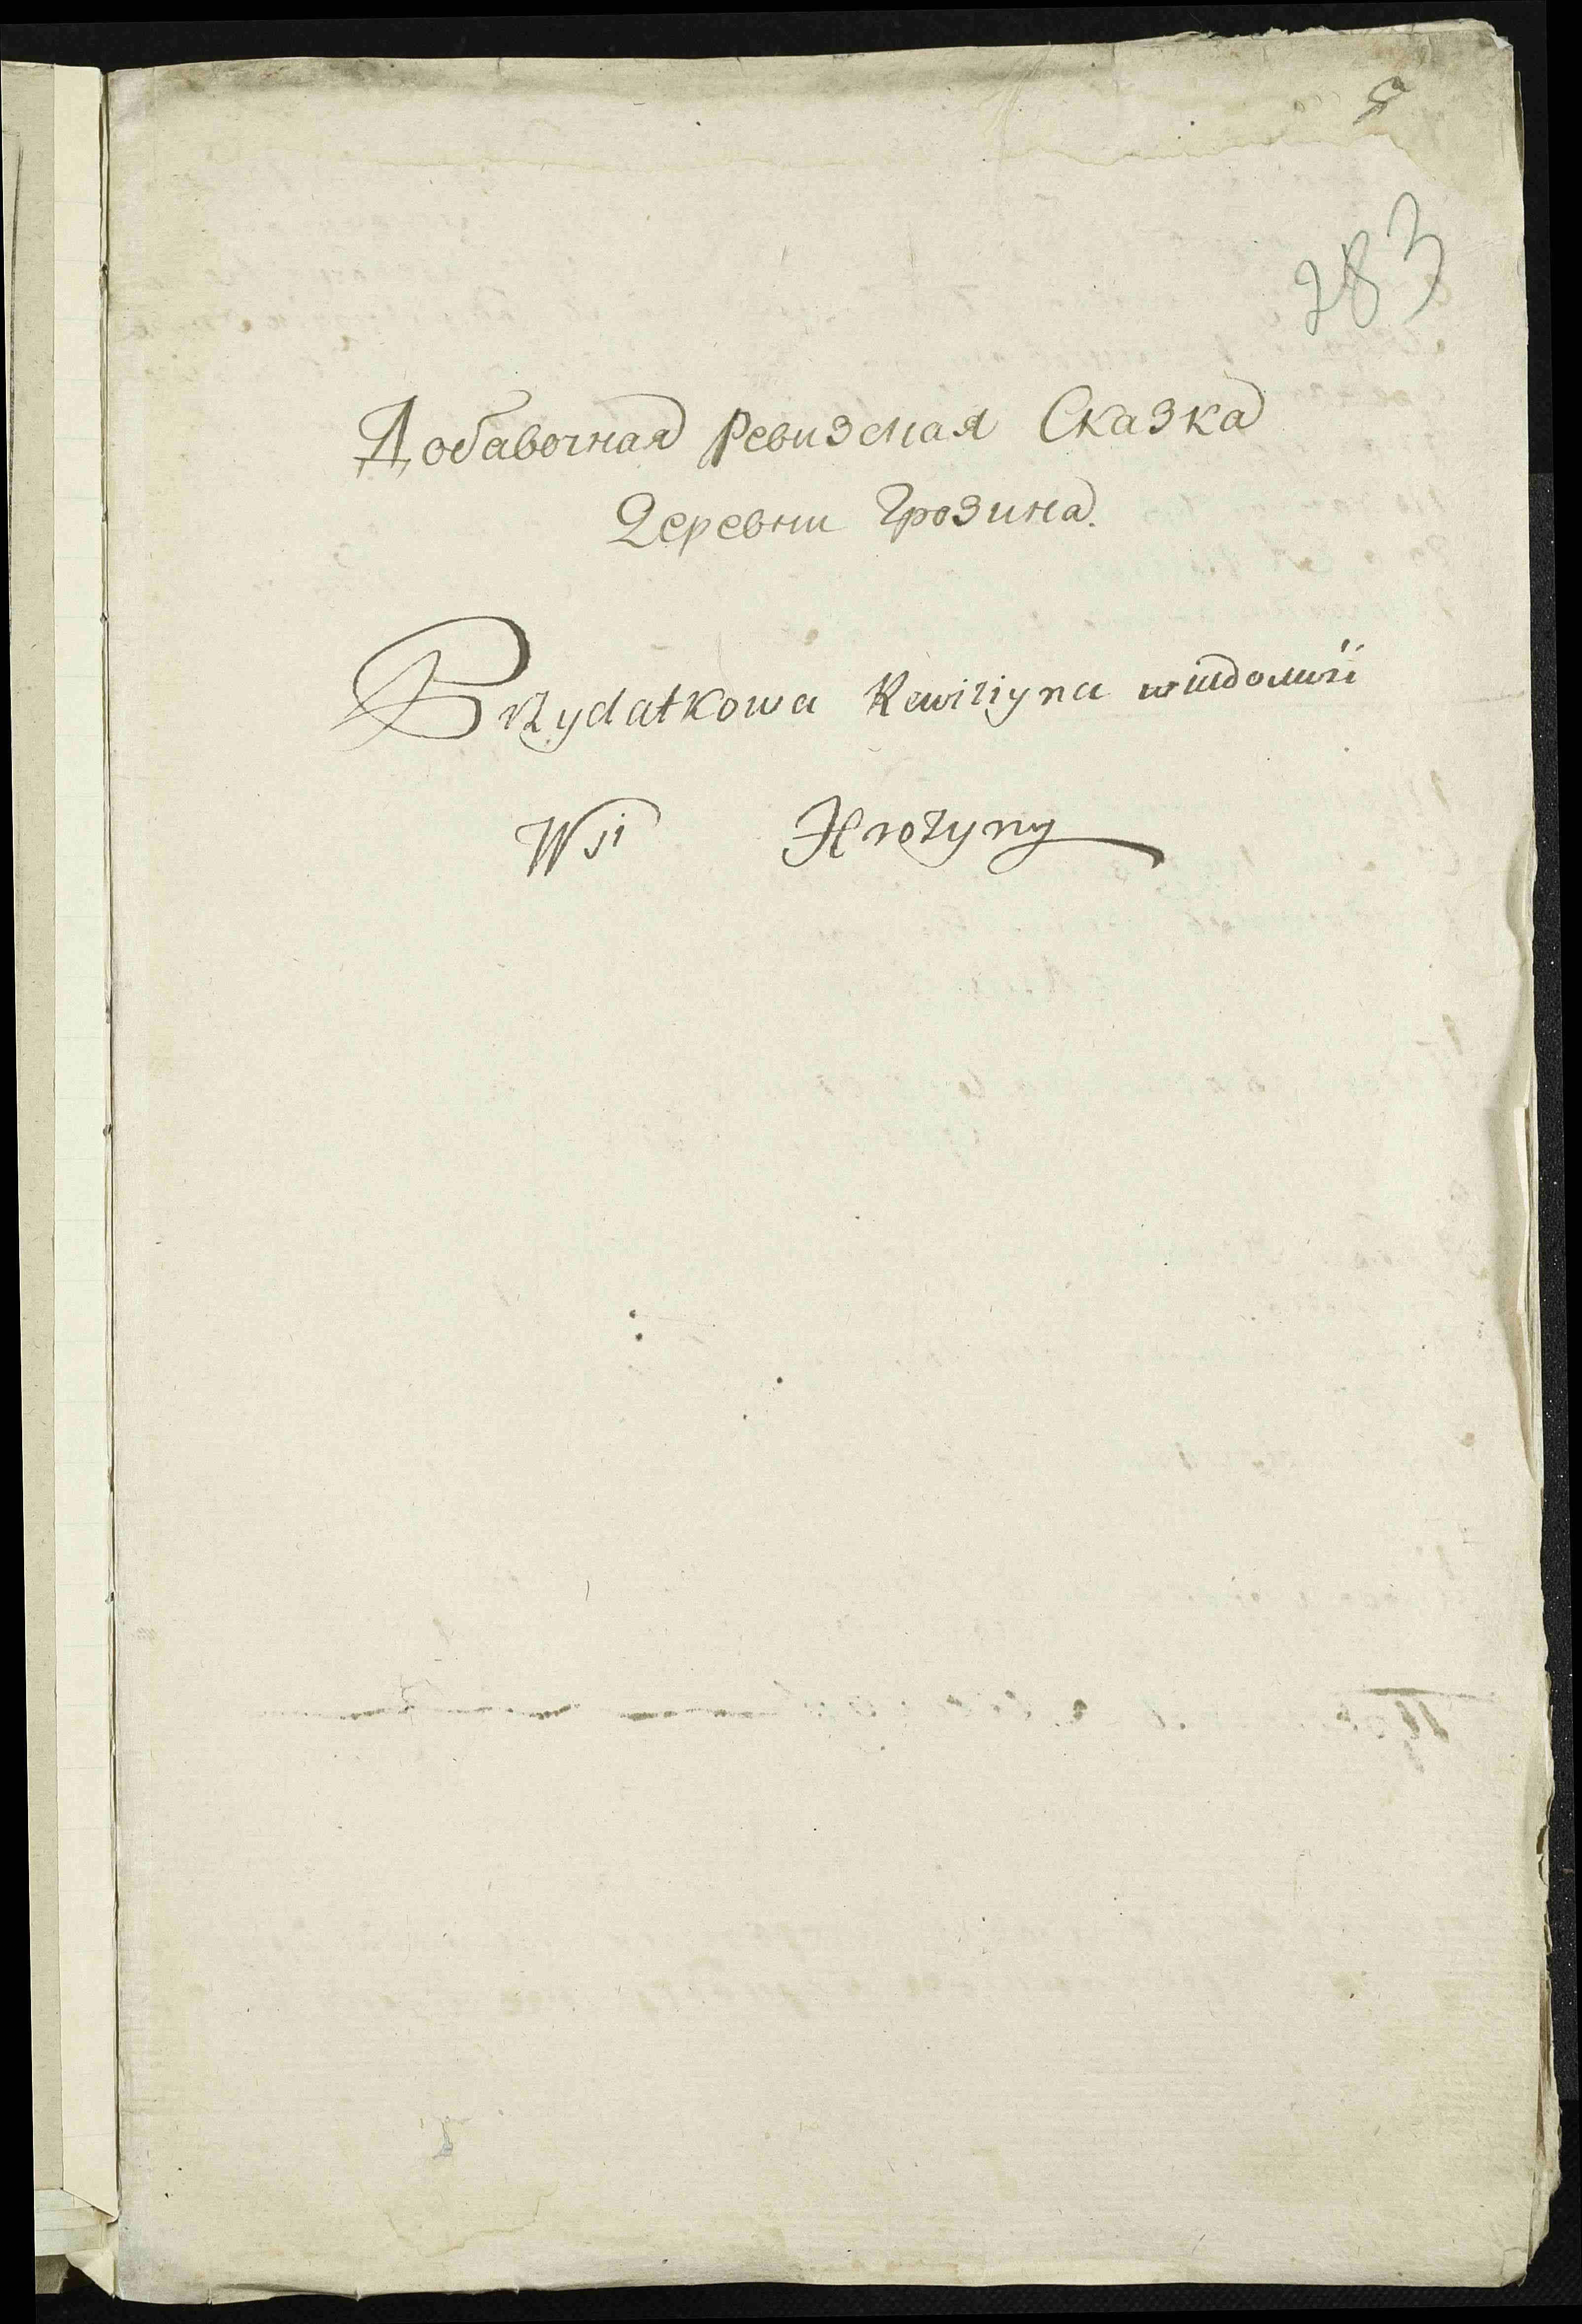 283
Добавочная Ревизсная Сказка
Деревни Грозина.
Przydatkowa Rewiziyna wiadomość
Wsi Hrozyny